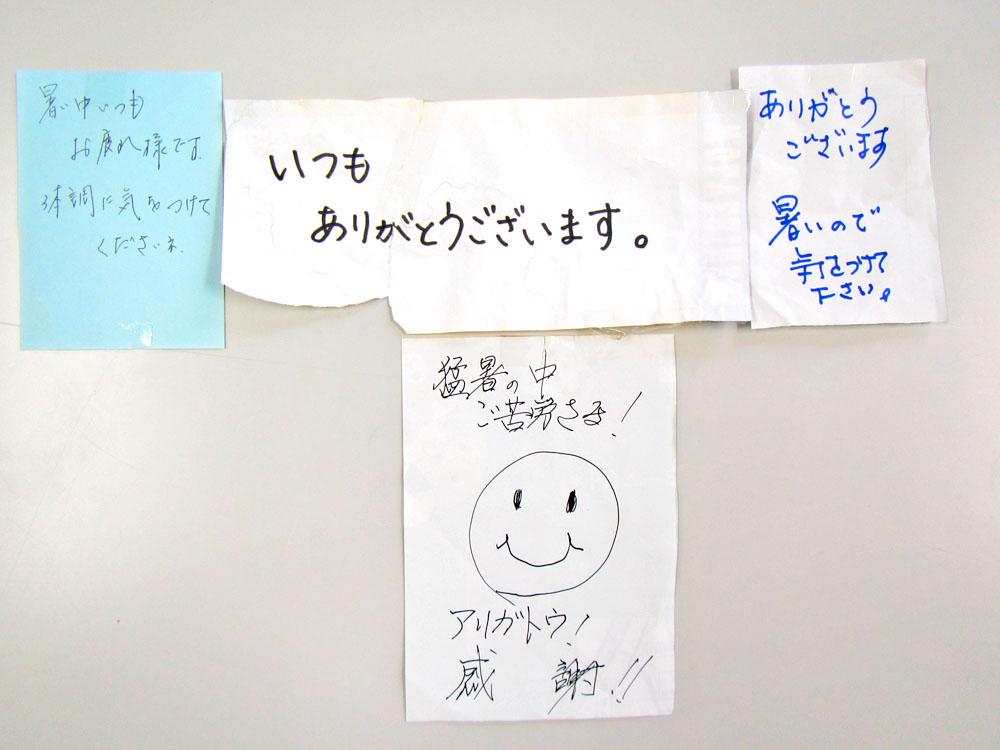 暑い中いつも
お疲れ様です。
体調に気をつけて
くださいネ。
いつも
ありがとうございます。
ありがとう
ございます
暑いので
気をつけて
下さい。
猛暑の中
ご苦労さま!
アリガトウ!
感謝!!